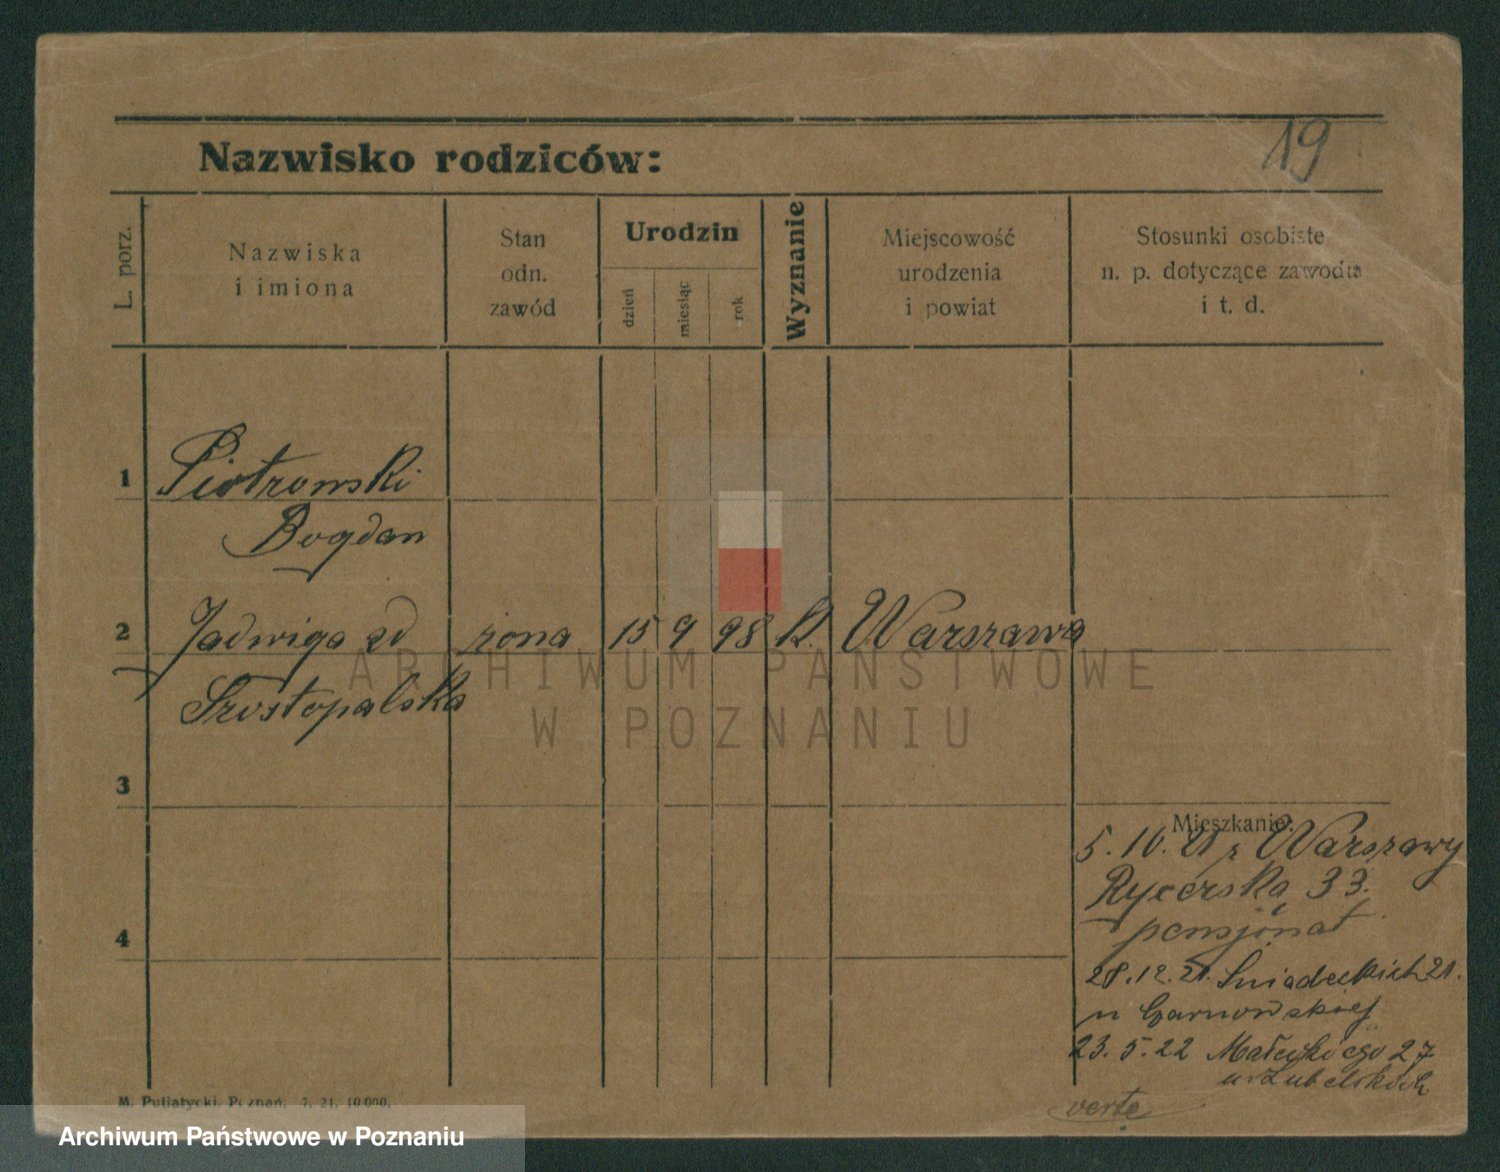 19
Nazwisko rodziców:
L. porz.
Nazwiska
i imiona
Stan
odn.
zawód
Urodzin
dzień
miesiąc
rok
Wyznanie
Miejscowość
urodzenia
i powiat
Stosunki osobiste
n. p. dotyczące zawodu
i t. d.
1
Piotrowski
Bogdan
2
Jadwiga zd żona 15 9 98 k. Warszawa
Szostopalska
ARCHIWUM PAŃSTWOWE
W POZNANIU
3
Mieszkanie:
5. 10. 21 z Warszawy
Rycerska 33.
pensjonat
4
28. 12. 21. Śniadeckich 21.
u Czarnowskiej
23. 5. 22 Małeckiego 27
u Lubelskich
verte
M. Putiatycki, Poznań. 7. 21. 10000.
Archiwum Państwowe w Poznaniu